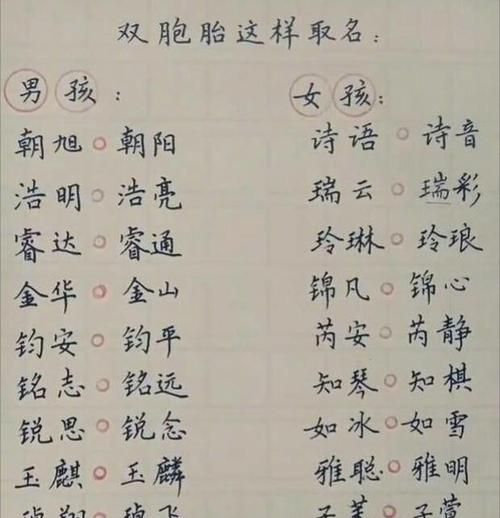 双胞胎这样取名：
男孩： 女孩：
朝旭 朝阳 诗语 诗音
浩明 浩亮 瑞云 瑞彩
睿达 睿通 玲琳 玲琅
金华 金山 锦凡 锦心
钧安 钧平 芮安 芮静
铭志 铭远 知琴 知棋
锐思 锐念 如冰 如雪
玉麒 玉麟 雅聪 雅明